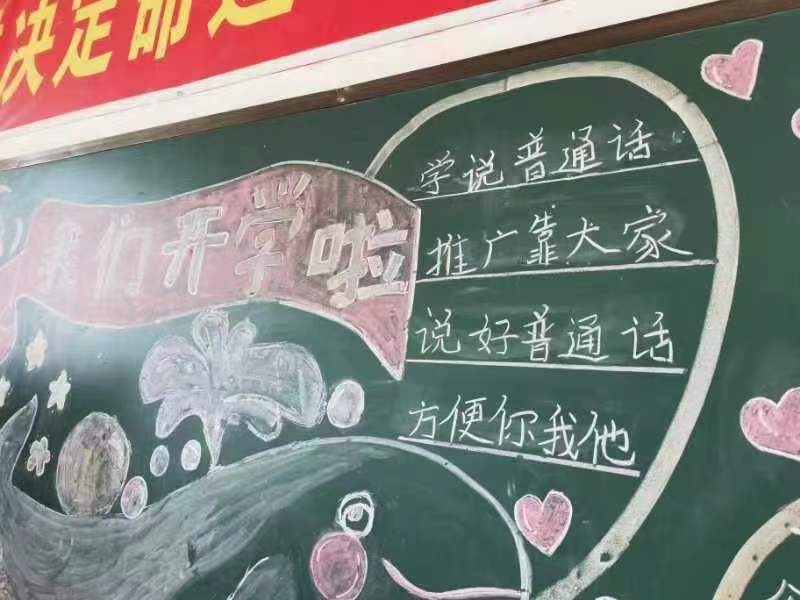 决定命运
我们开学啦
学说普通话
推广靠大家
说好普通话
方便你我他